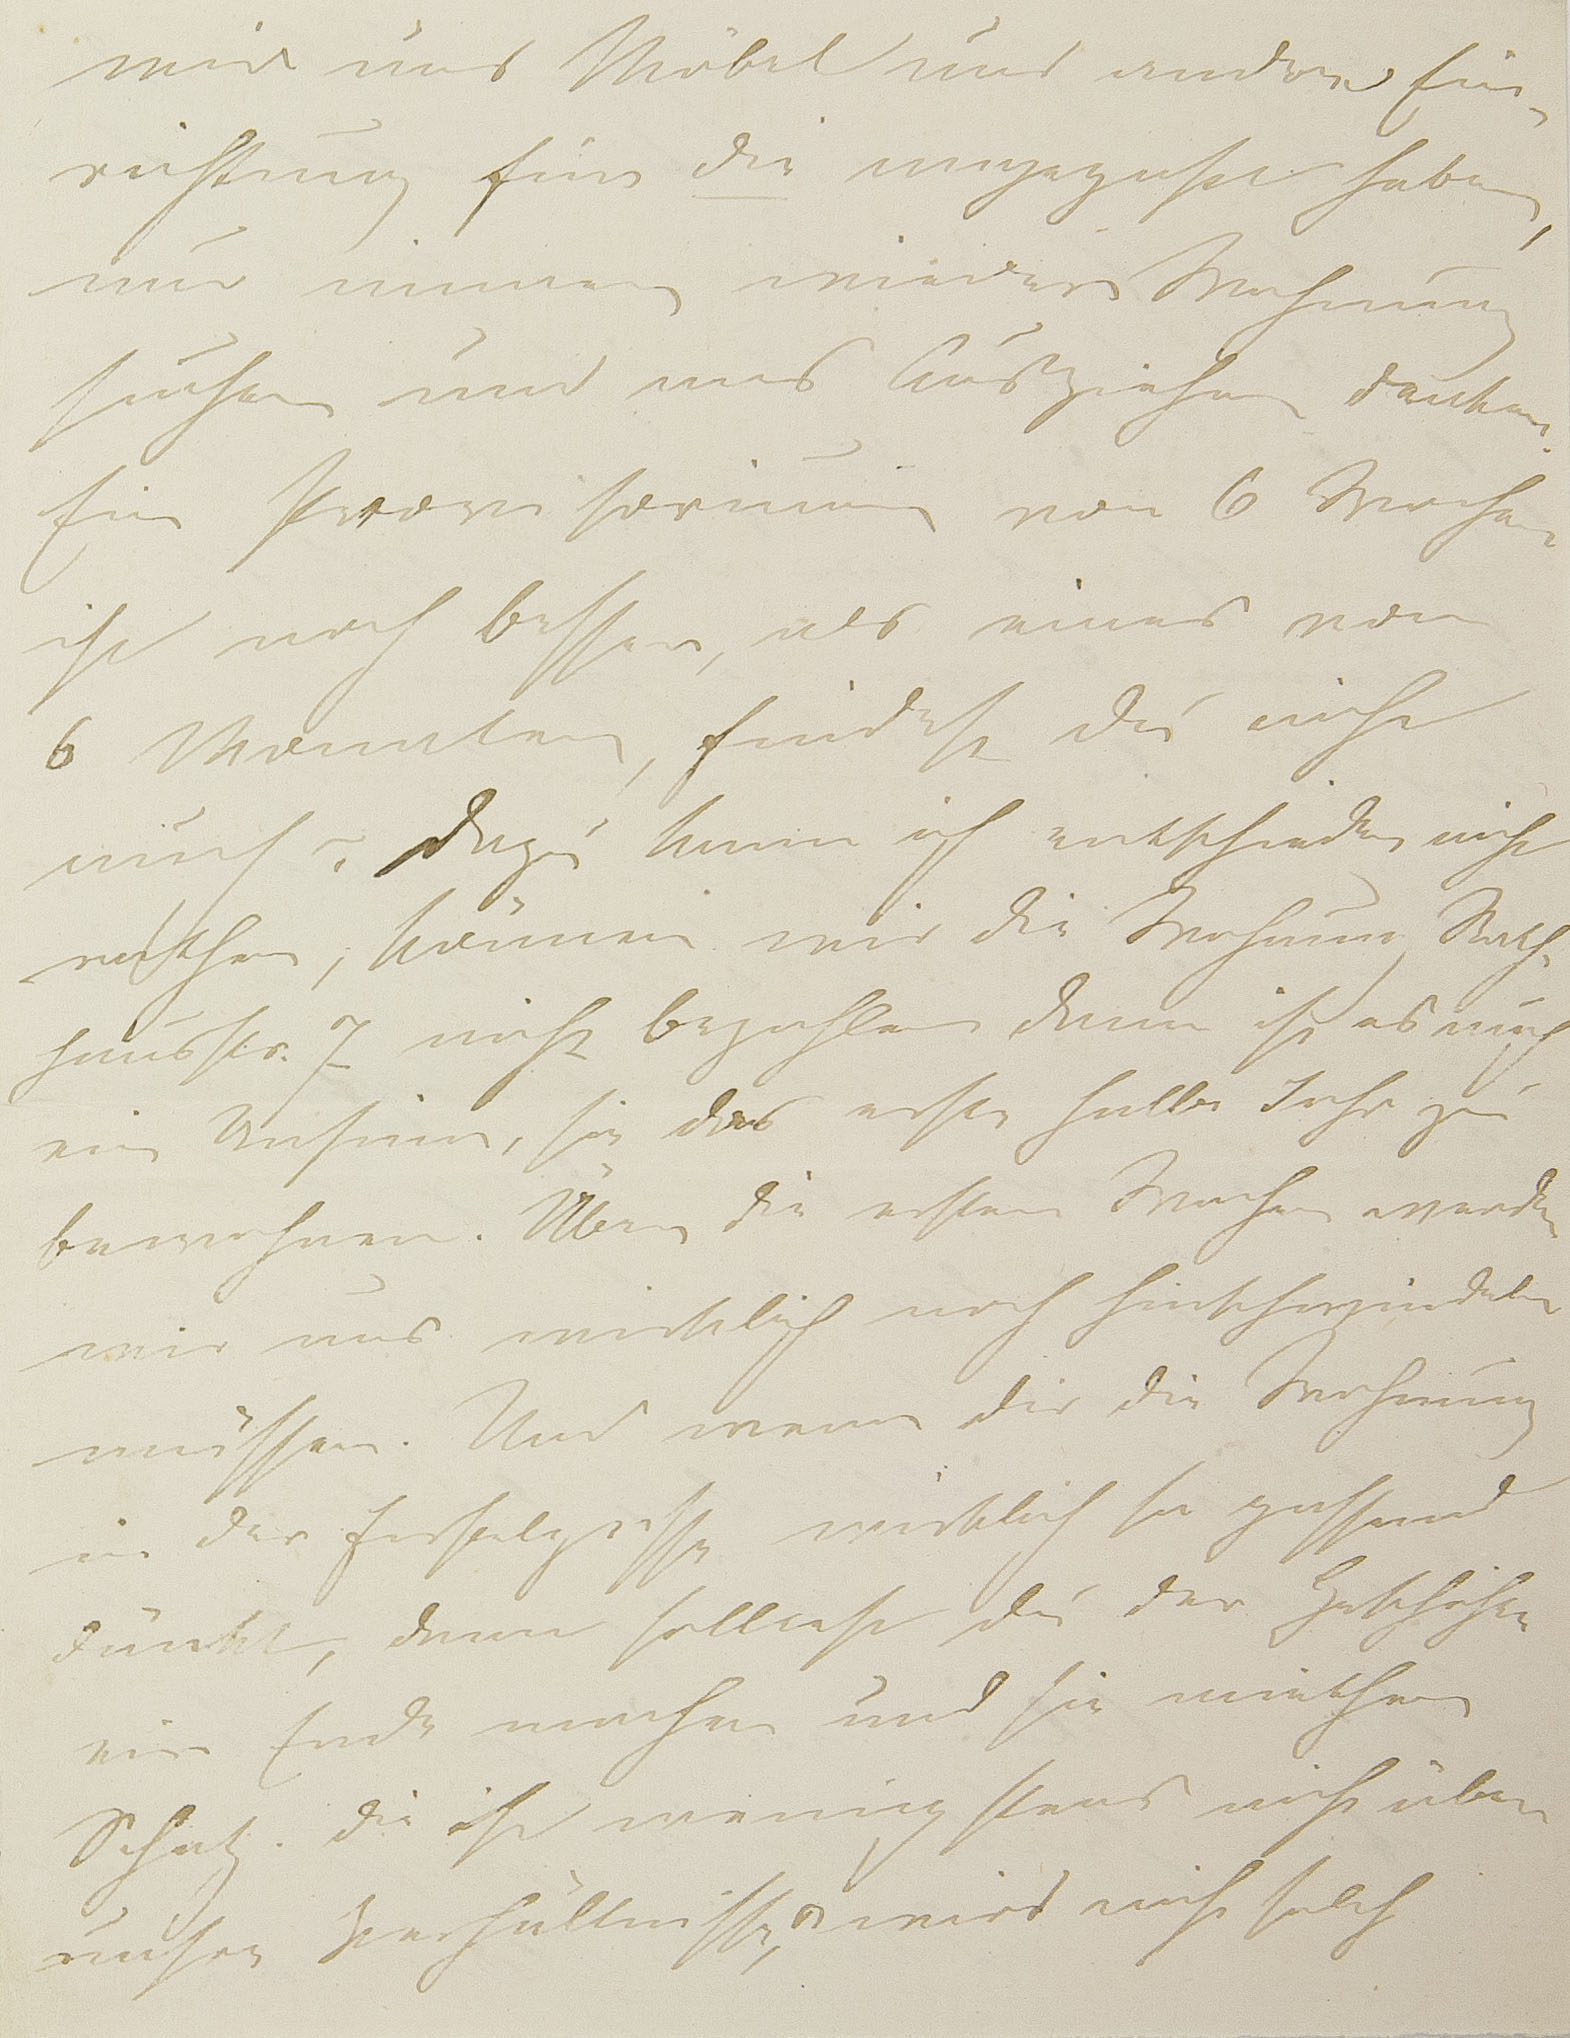 wir uns Möbel und andre Ein-
richtung für die angepaßt haben,
nur immer wieder Wohnung
suchen und ans Ausziehen denken.
Ein Provisorium von 6 Wochen
ist noch besser, als eines von
6 Monaten, findest du nicht
auch? Dazu kann ich entschieden nicht
rathen; können wir die Wohnung Rath-
hausstr. 7 nicht bezahlen dann ist es auch
ein Unsinn, sie das erste halbe Jahr zu
bewohnen. Über die ersten Wochen werden
wir uns wirklich noch hinschwindeln
müssen. Und wenn dir die Wohnung
in der wirklich so passend
dünkt, dann solltest du der Geschichte
ein Ende machen und sie miethen
Schatz. die ist wenigstens nicht über
unsre Verhältnisse, & wird nicht solch